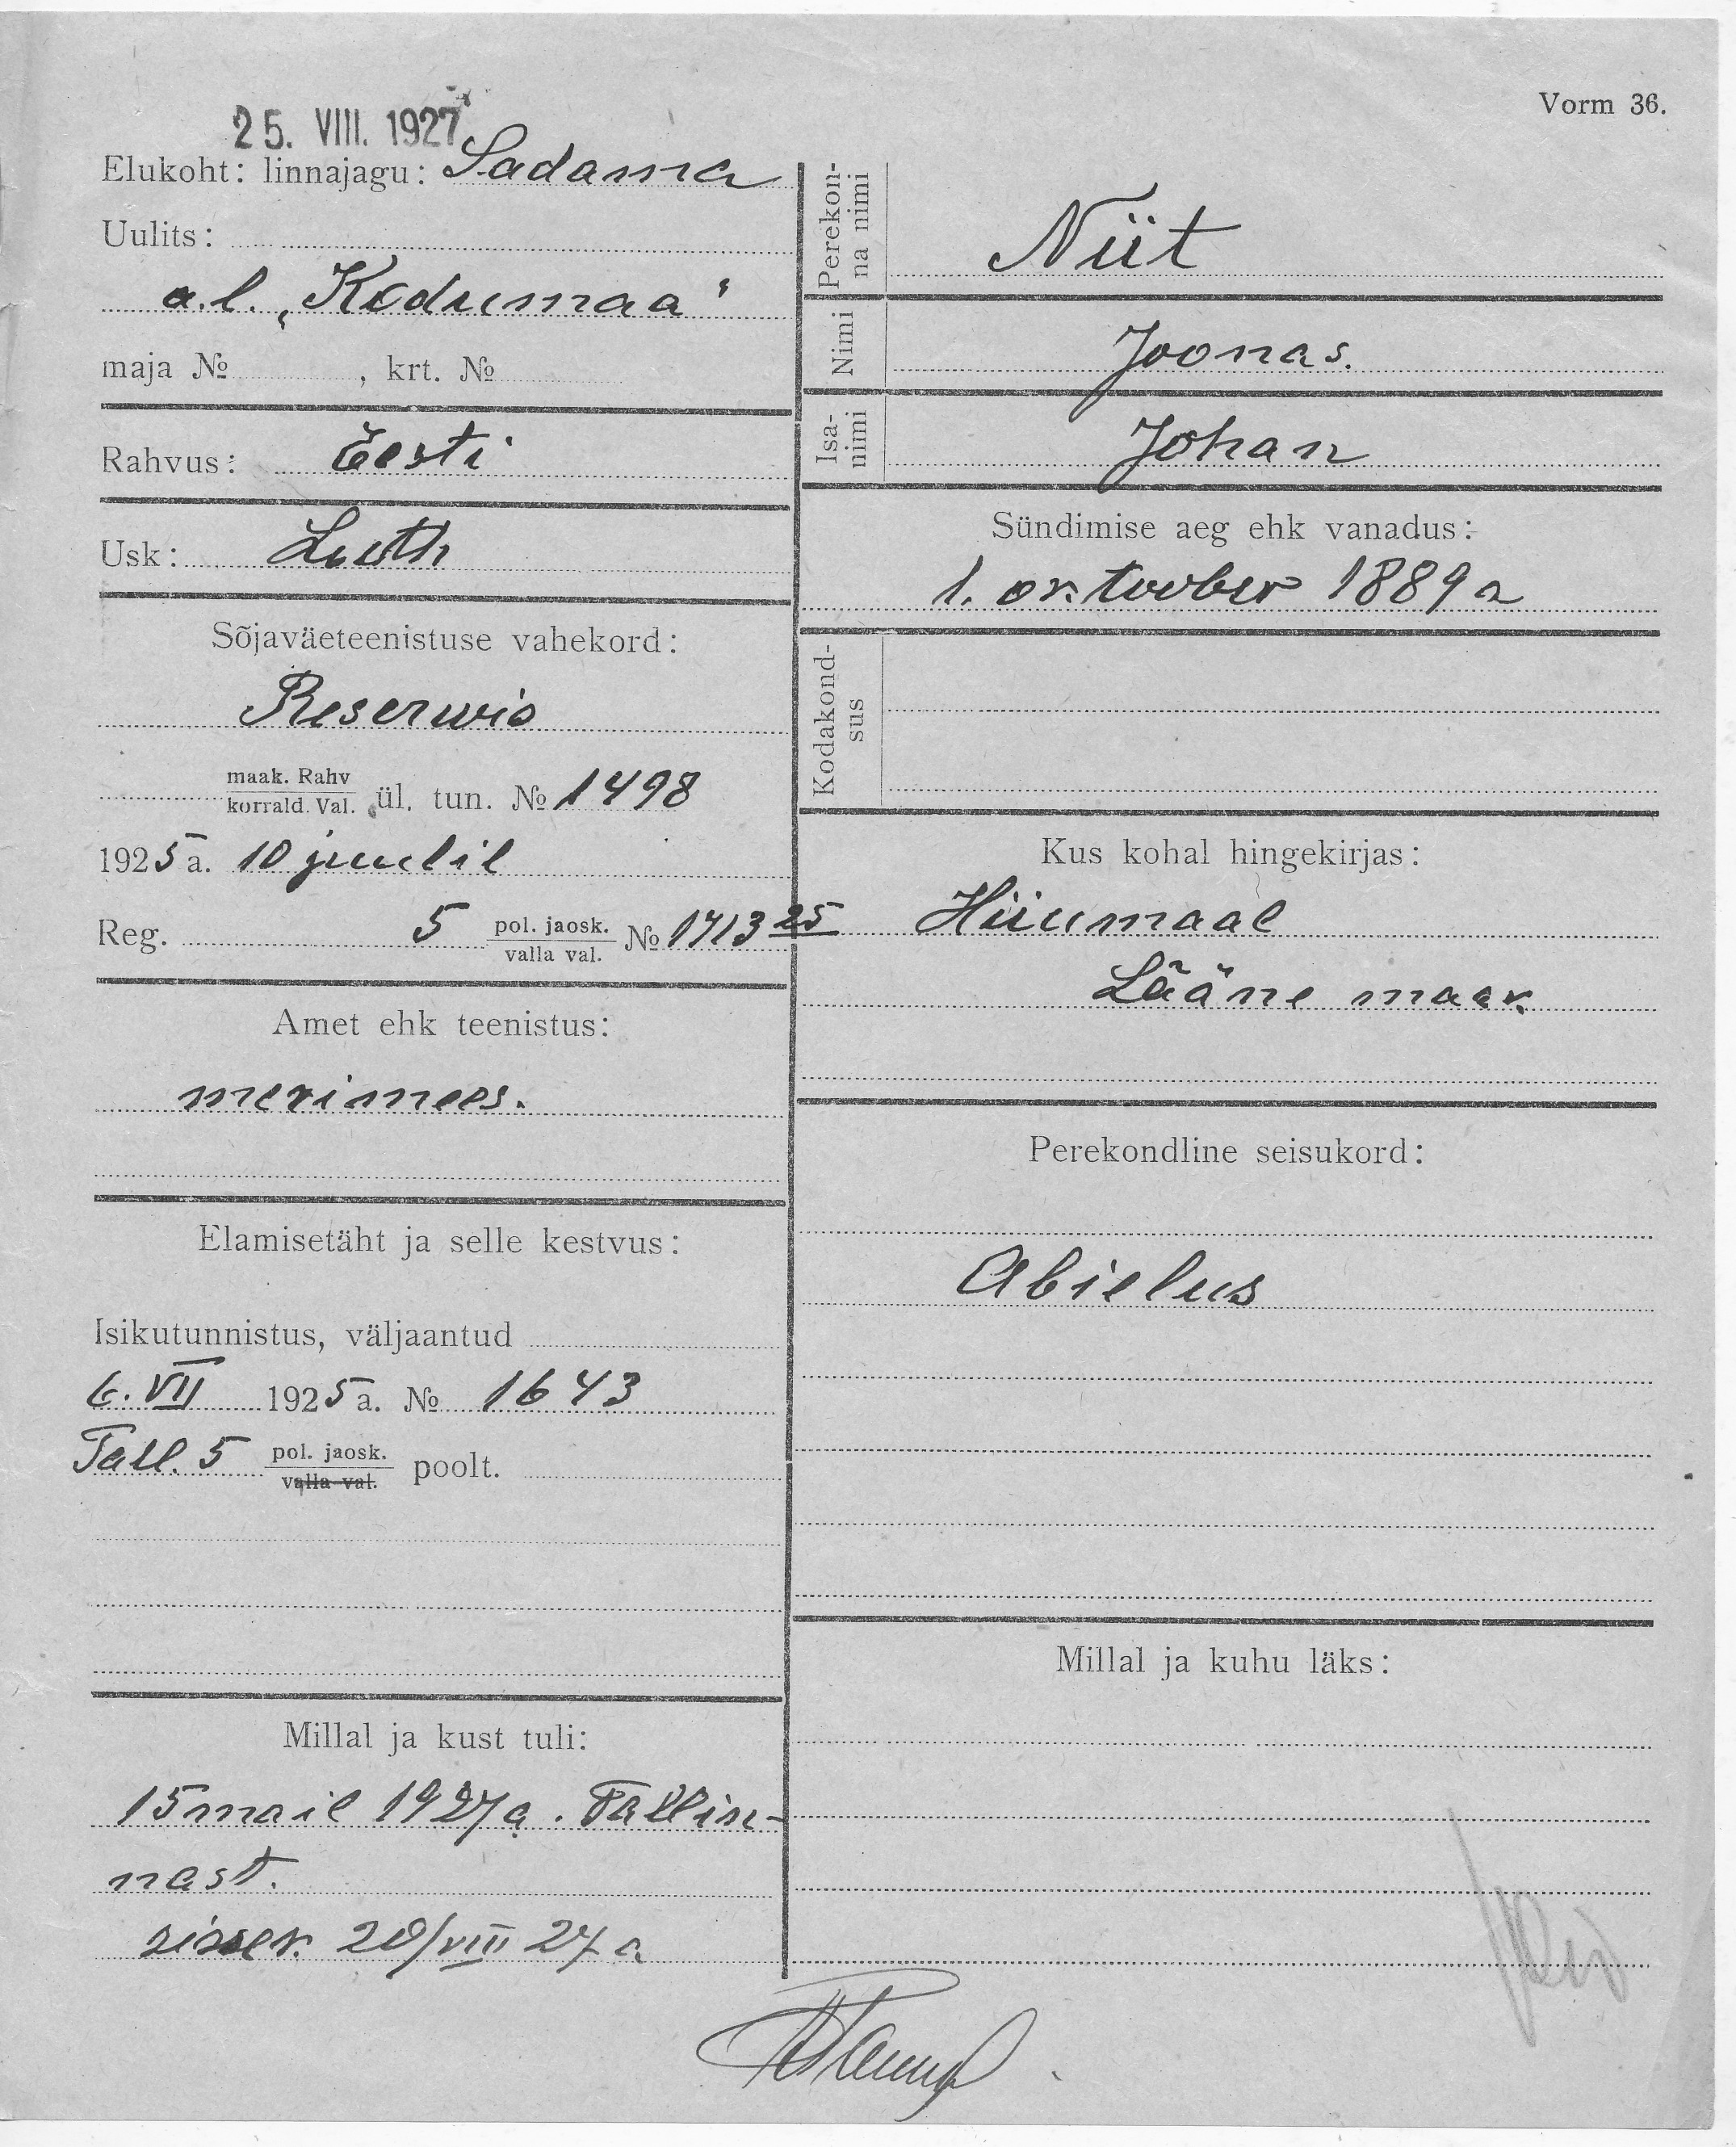 Vorm 36.
25. VIII. 1927
Elukoht: linnajagu: Sadama
Uulits:
a.l. „Kodumaa"
maja № , krt. №
Rahvus: Eesti
Usk: Luth
Sõjaväeteenistuse vahekord:
Reserwis
maak. Rahv
korrald. Val. ül. tun. № 1498
1925 a. 10 juulil
Reg. 5 pol. jaosk. № 1713 25
valla val.
Amet ehk teenistus:
merimees.
Elamisetäht ja selle kestvus:
Isikutunnistus, väljaantud
6. VII 1925 a. № 1643
Tall. 5 pol. jaosk. poolt.
valla val.
Millal ja kust tuli:
15 mail 1927 a. Tallin-
nast.
sissek. 20/VIII 27 a
Perekon-
na nimi
Niit
Nimi
Joonas.
Isa-
nimi
Johan
Sündimise aeg ehk vanadus:
1. oktoober 1889 a
Kodakond-
sus
Kus kohal hingekirjas:
Hiiumaal
Lääne maak.
Perekondline seisukord:
Abielus
Millal ja kuhu läks: